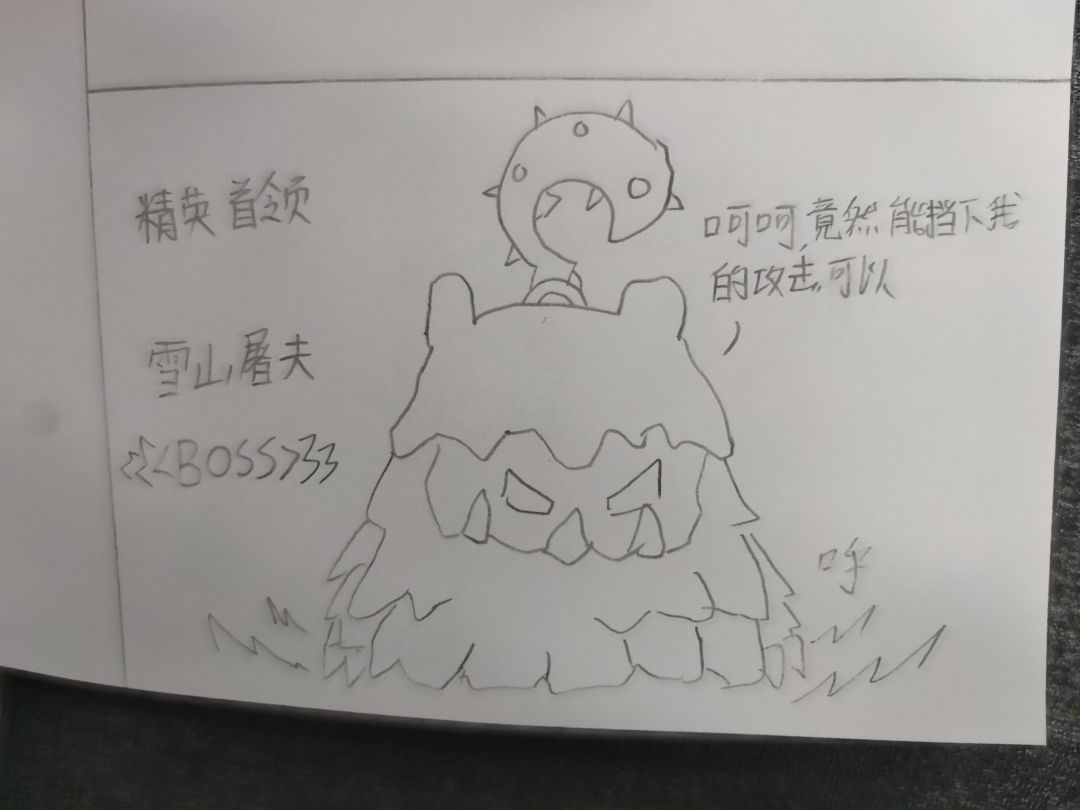 精英首领
雪山屠夫
<<<BOSS>>>
呵呵,竟然能挡下我
的攻击,可以
呼